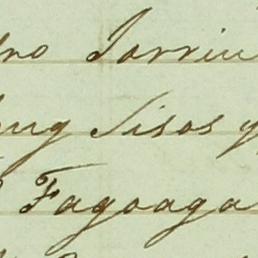 dro Torriu
ung Sisos y
Fagoaga